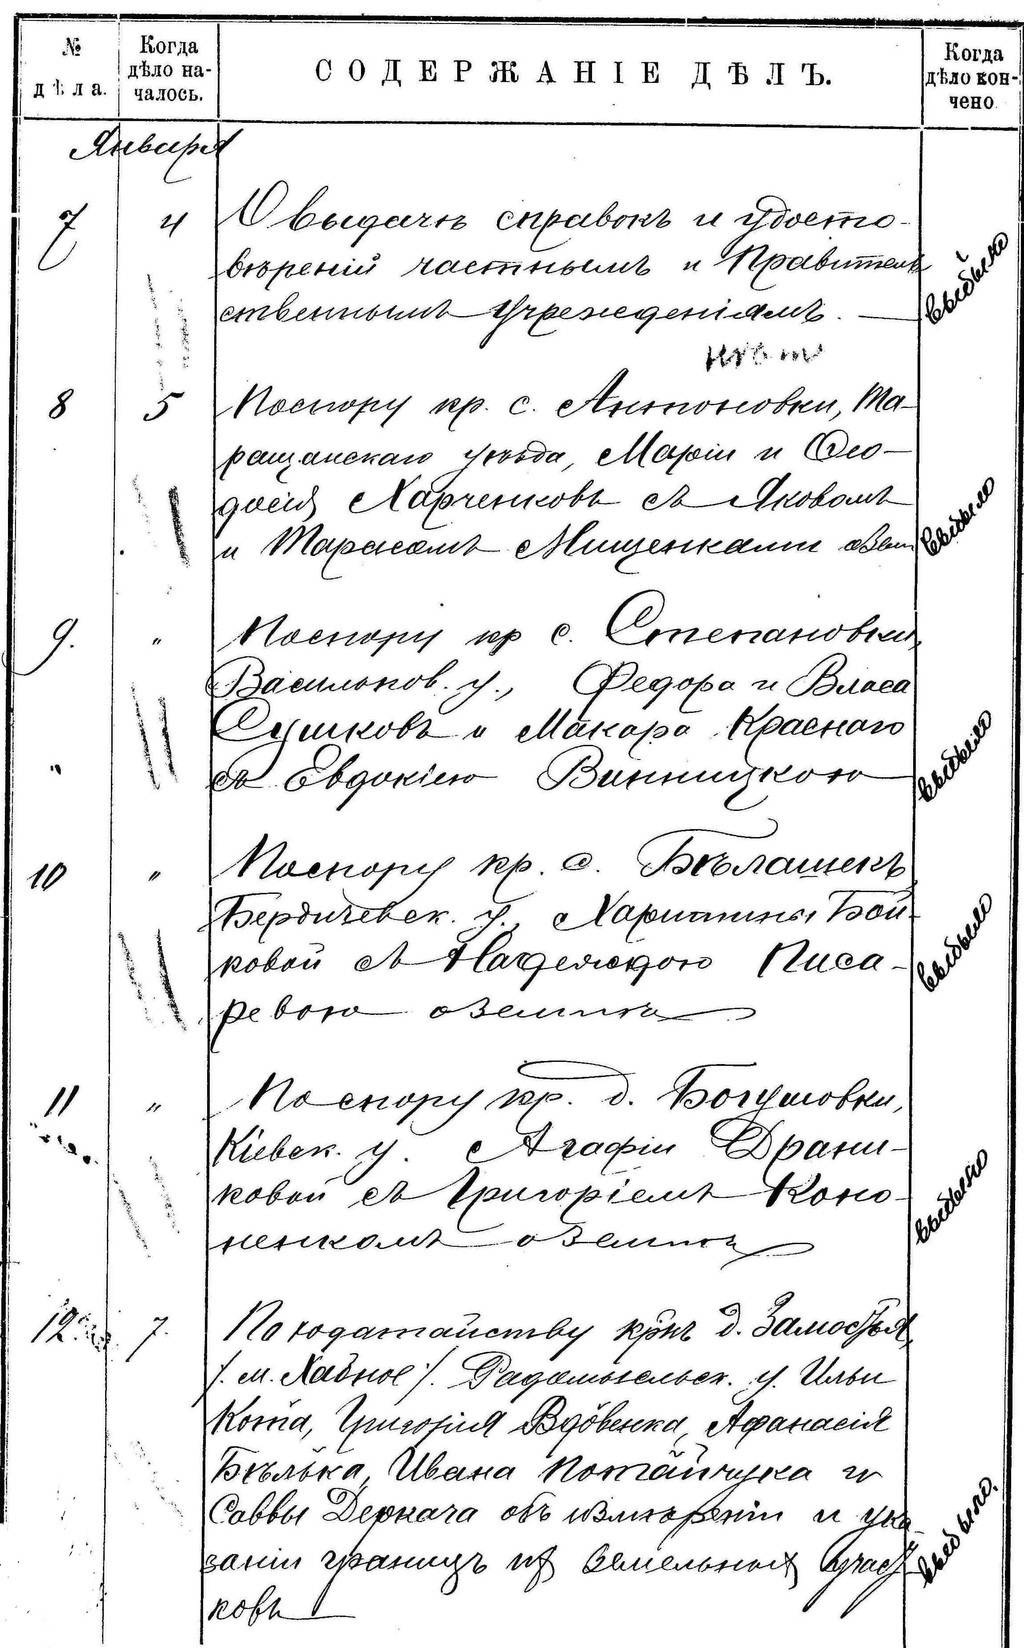 № дѣла.
Когда дѣло на-
чалось.
СОДЕРЖАНІЕ ДѢЛЪ.
Когда дѣло кон-
чено
Января
7 4 О выдачѣ справокъ и удосто-
вѣреній частнымъ и Правитель
ственнымъ учрежденіямъ. —
выбыло
нѣтъ
8 5 По спору кр. с. Антоновки, Та-
ращанскаго уѣзда, Маріи и Ѳео-
досія Харченковъ съ Яковомъ
и Тарасомъ Мищенками о зем
выбыло
9. " По спору кр с. Степановки,
Васильков. у., Федора и Власа
Сушковъ и Макара Краснаго
" съ Евдокіею Винницкою
выбыло
10 " По спору кр. с. Бѣлашекъ
Бердичевск. у., Харитины Бой-
ковой съ Надеждою Писа-
ревою о землѣ
выбыло
11 " По спору кр. д. Богушовки,
Кіевск. у. Агафіи Драни-
ковой съ Григоріемъ Коно-
ненкомъ о землѣ
выбыло
12 7. По ходатайству крнъ д. Замостья,
/. м. Хабное ./. Радомысльск. у. Ильи
Кота, Григорія Вдовенка, Афанасія
Бѣлька, Ивана Потайчука и
Саввы Деркача объ измѣреніи и ука-
заніи границъ ихъ земельныхъ участ
ковъ
выбыло.